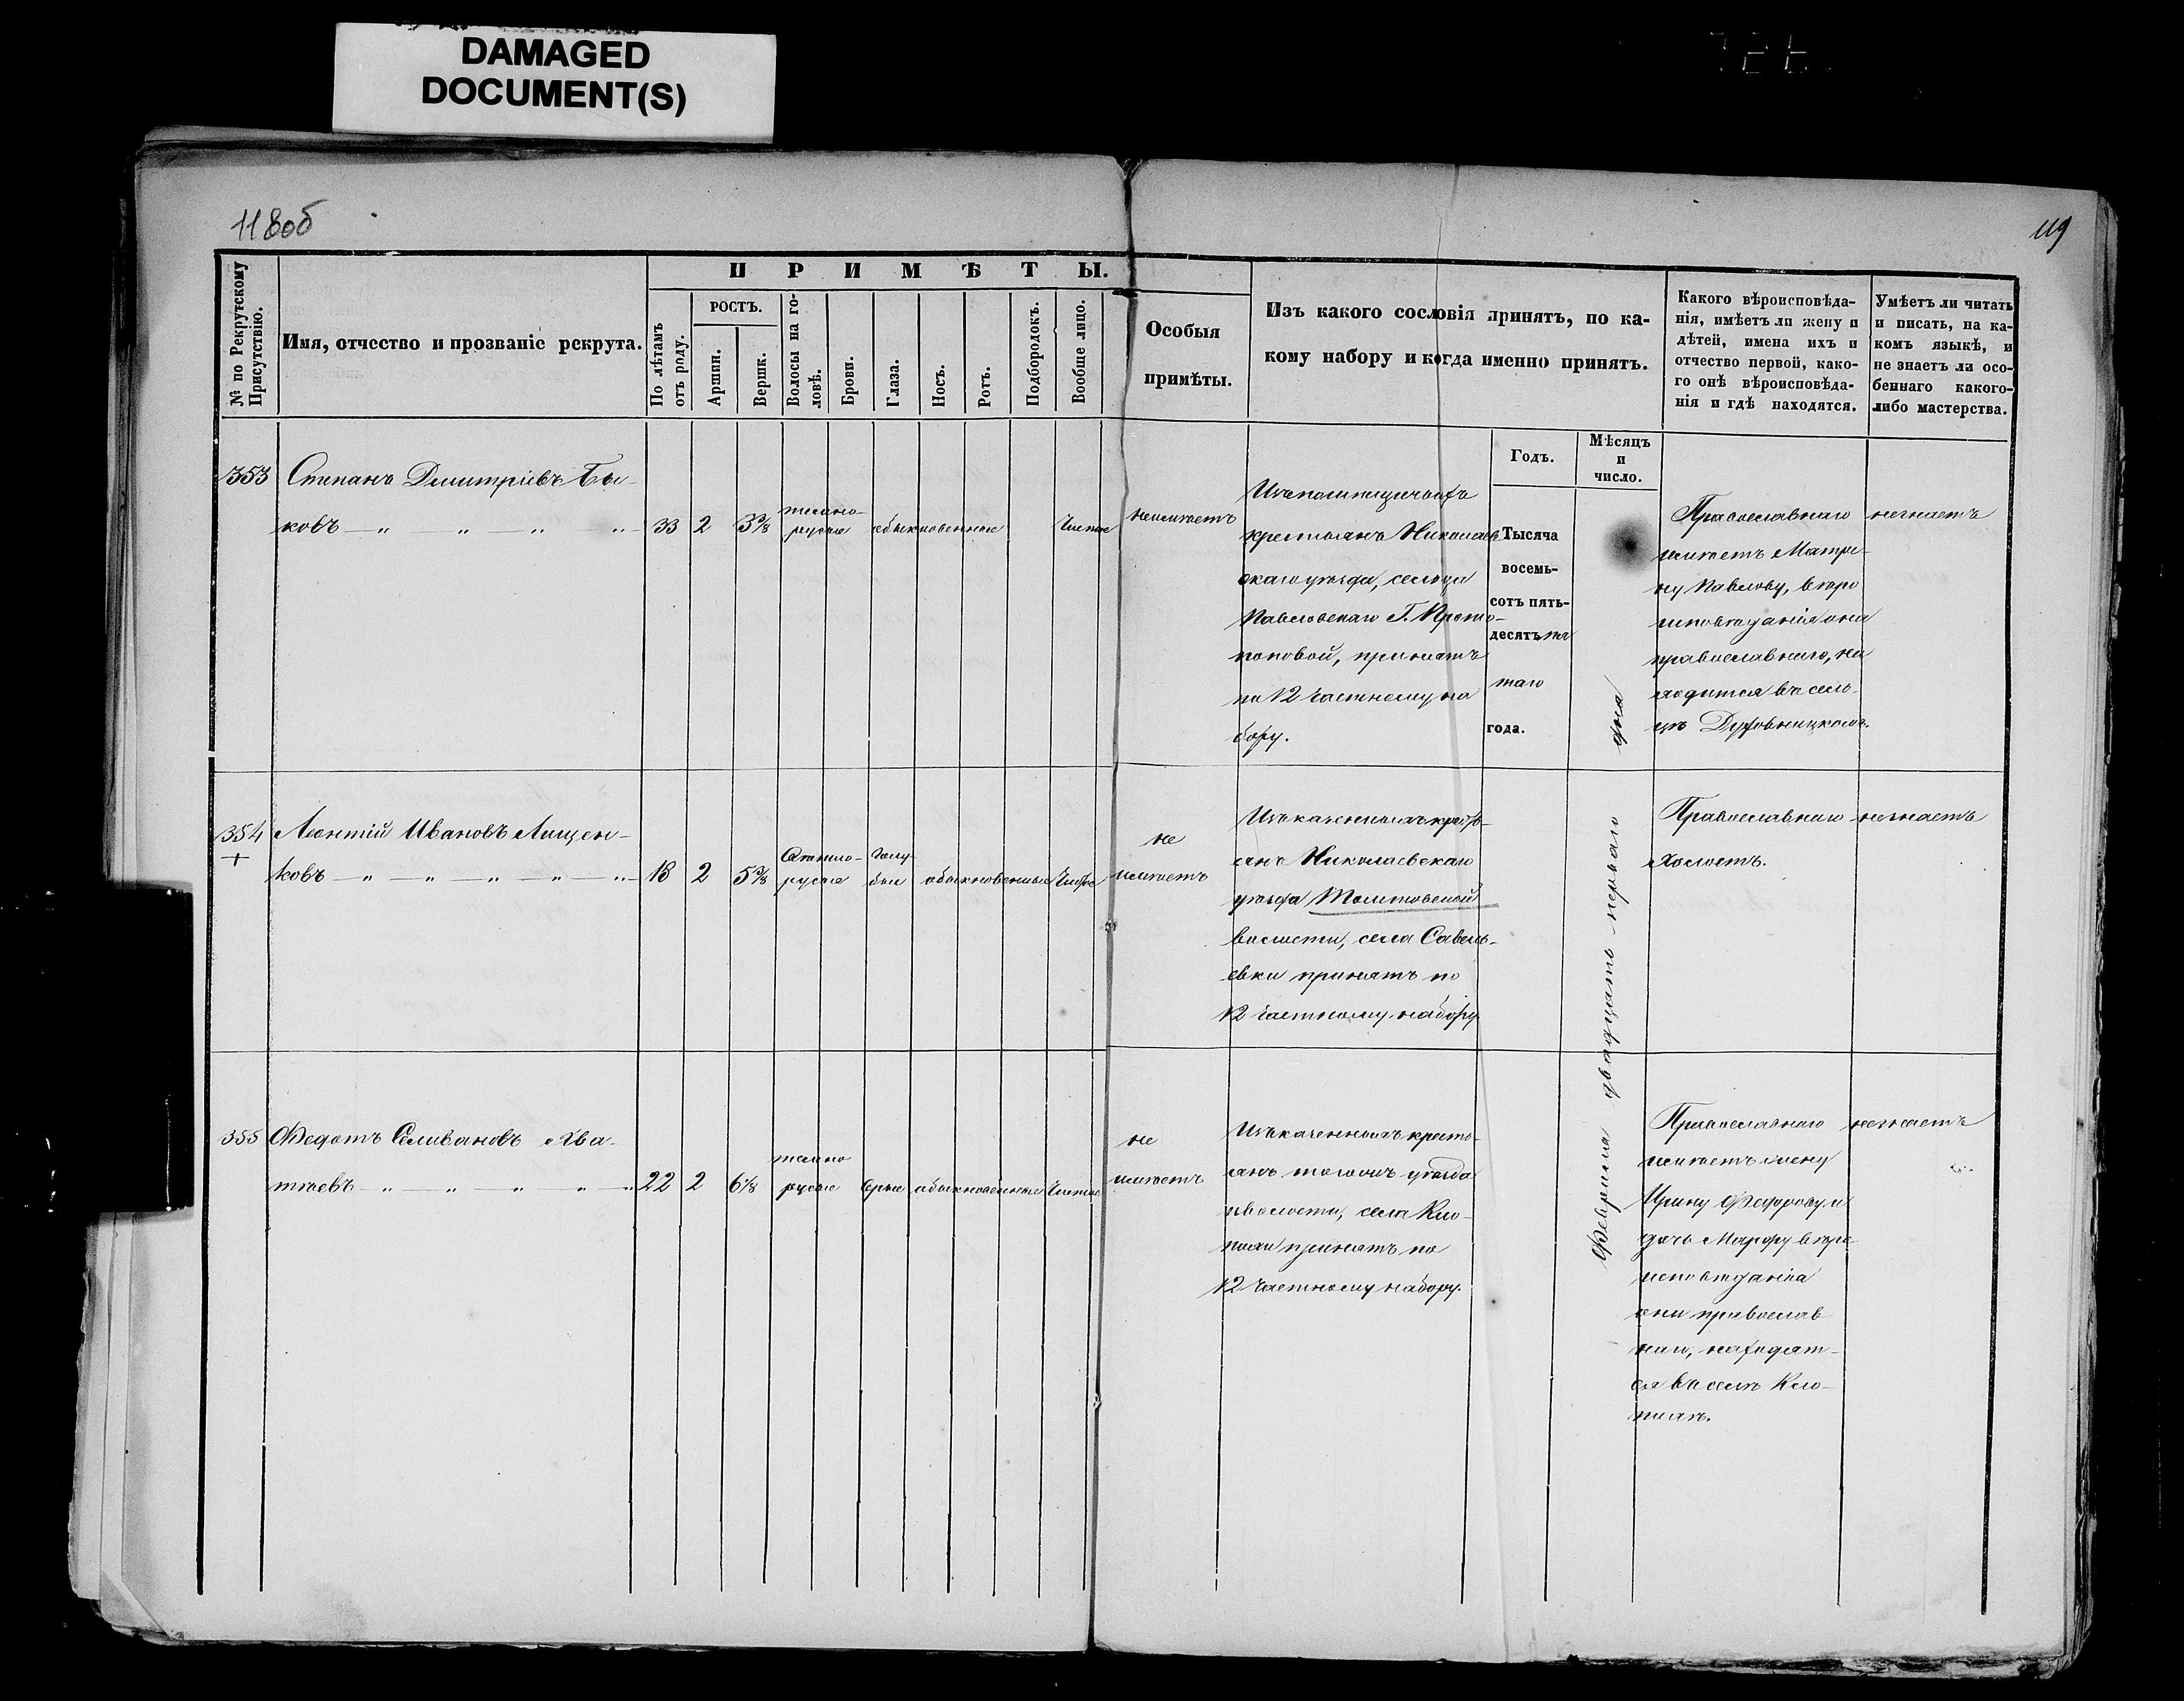 DAMAGED
DOCUMENT(S)
118об
119
№ по Рекрутскому
Присутствію.
Имя, отчество и прозваніе рекрута.
ПРИМѢТЫ.
По лѣтамъ
отъ роду.
РОСТЪ.
Аршин.
Вершк.
Волосы на го-
ловѣ.
Брови.
Глаза.
Носъ.
Ротъ.
Подбородокъ.
Вообще лицо.
Особыя
примѣты.
Изъ какого сословія принятъ, по ка-
кому набору и когда именно принятъ.
Какого вѣроисповѣда-
нія, имѣетъ ли жену и
дѣтей, имена ихъ и
отчество первой, како-
го онѣ вѣроисповѣда-
нія и гдѣ находятся.
Умѣетъ ли читать
и писать, на ка-
комъ языкѣ, и
не знаетъ ли осо-
беннаго какого-
либо мастерства.
Годъ.
Мѣсяцъ
и
число.
353
Степанъ Димитріевъ Бы-
ковъ
33
2
3⅜
темно-
русые
обыкновенные
Чистое
неимѣетъ
Изъ помѣщичьихъ
крестьянъ Николаев
скаго уѣзда, сельца
Павловскаго Г. Прото-
поповой, принятъ
по 12 частному на
бору.
Тысяча
восемь-
сотъ пять-
десятъ пя
таго
года.
Февраля двадцать перваго дня
Православнаго
имѣетъ Матре-
ну Павлову, вѣро
исповѣданія она
православнаго, на
ходится въ сель-
цѣ Духовницкомъ.
незнаетъ
354
+
Леонтій Ивановъ Лищен-
ковъ
18
2
5⅜
Свѣтло-
русые
голу
бые
обыкновенные
Чистое
не
имѣетъ
Изъ казенныхъ кресть-
янъ Николаевскаго
уѣзда Толстовской
волости, села Савель-
евки принятъ по
12 частному набору
Православнаго
Холостъ.
незнаетъ
355
Федотъ Селивановъ Хва-
тѣевъ
22
2
6⅛
темно
русые
Серые
обыкновенные
Чистое
не
имѣетъ
Изъ казенныхъ кресть-
янъ тогожъ уѣзда
и волости, села Кло-
пихи принятъ по
12 частному набору.
Православнаго
имѣетъ жену
Ирину Федорову и
дочь Марфу вѣро-
исповѣданія
они православ
наго, находят-
ся въ селѣ Кло-
пихѣ.
незнаетъ